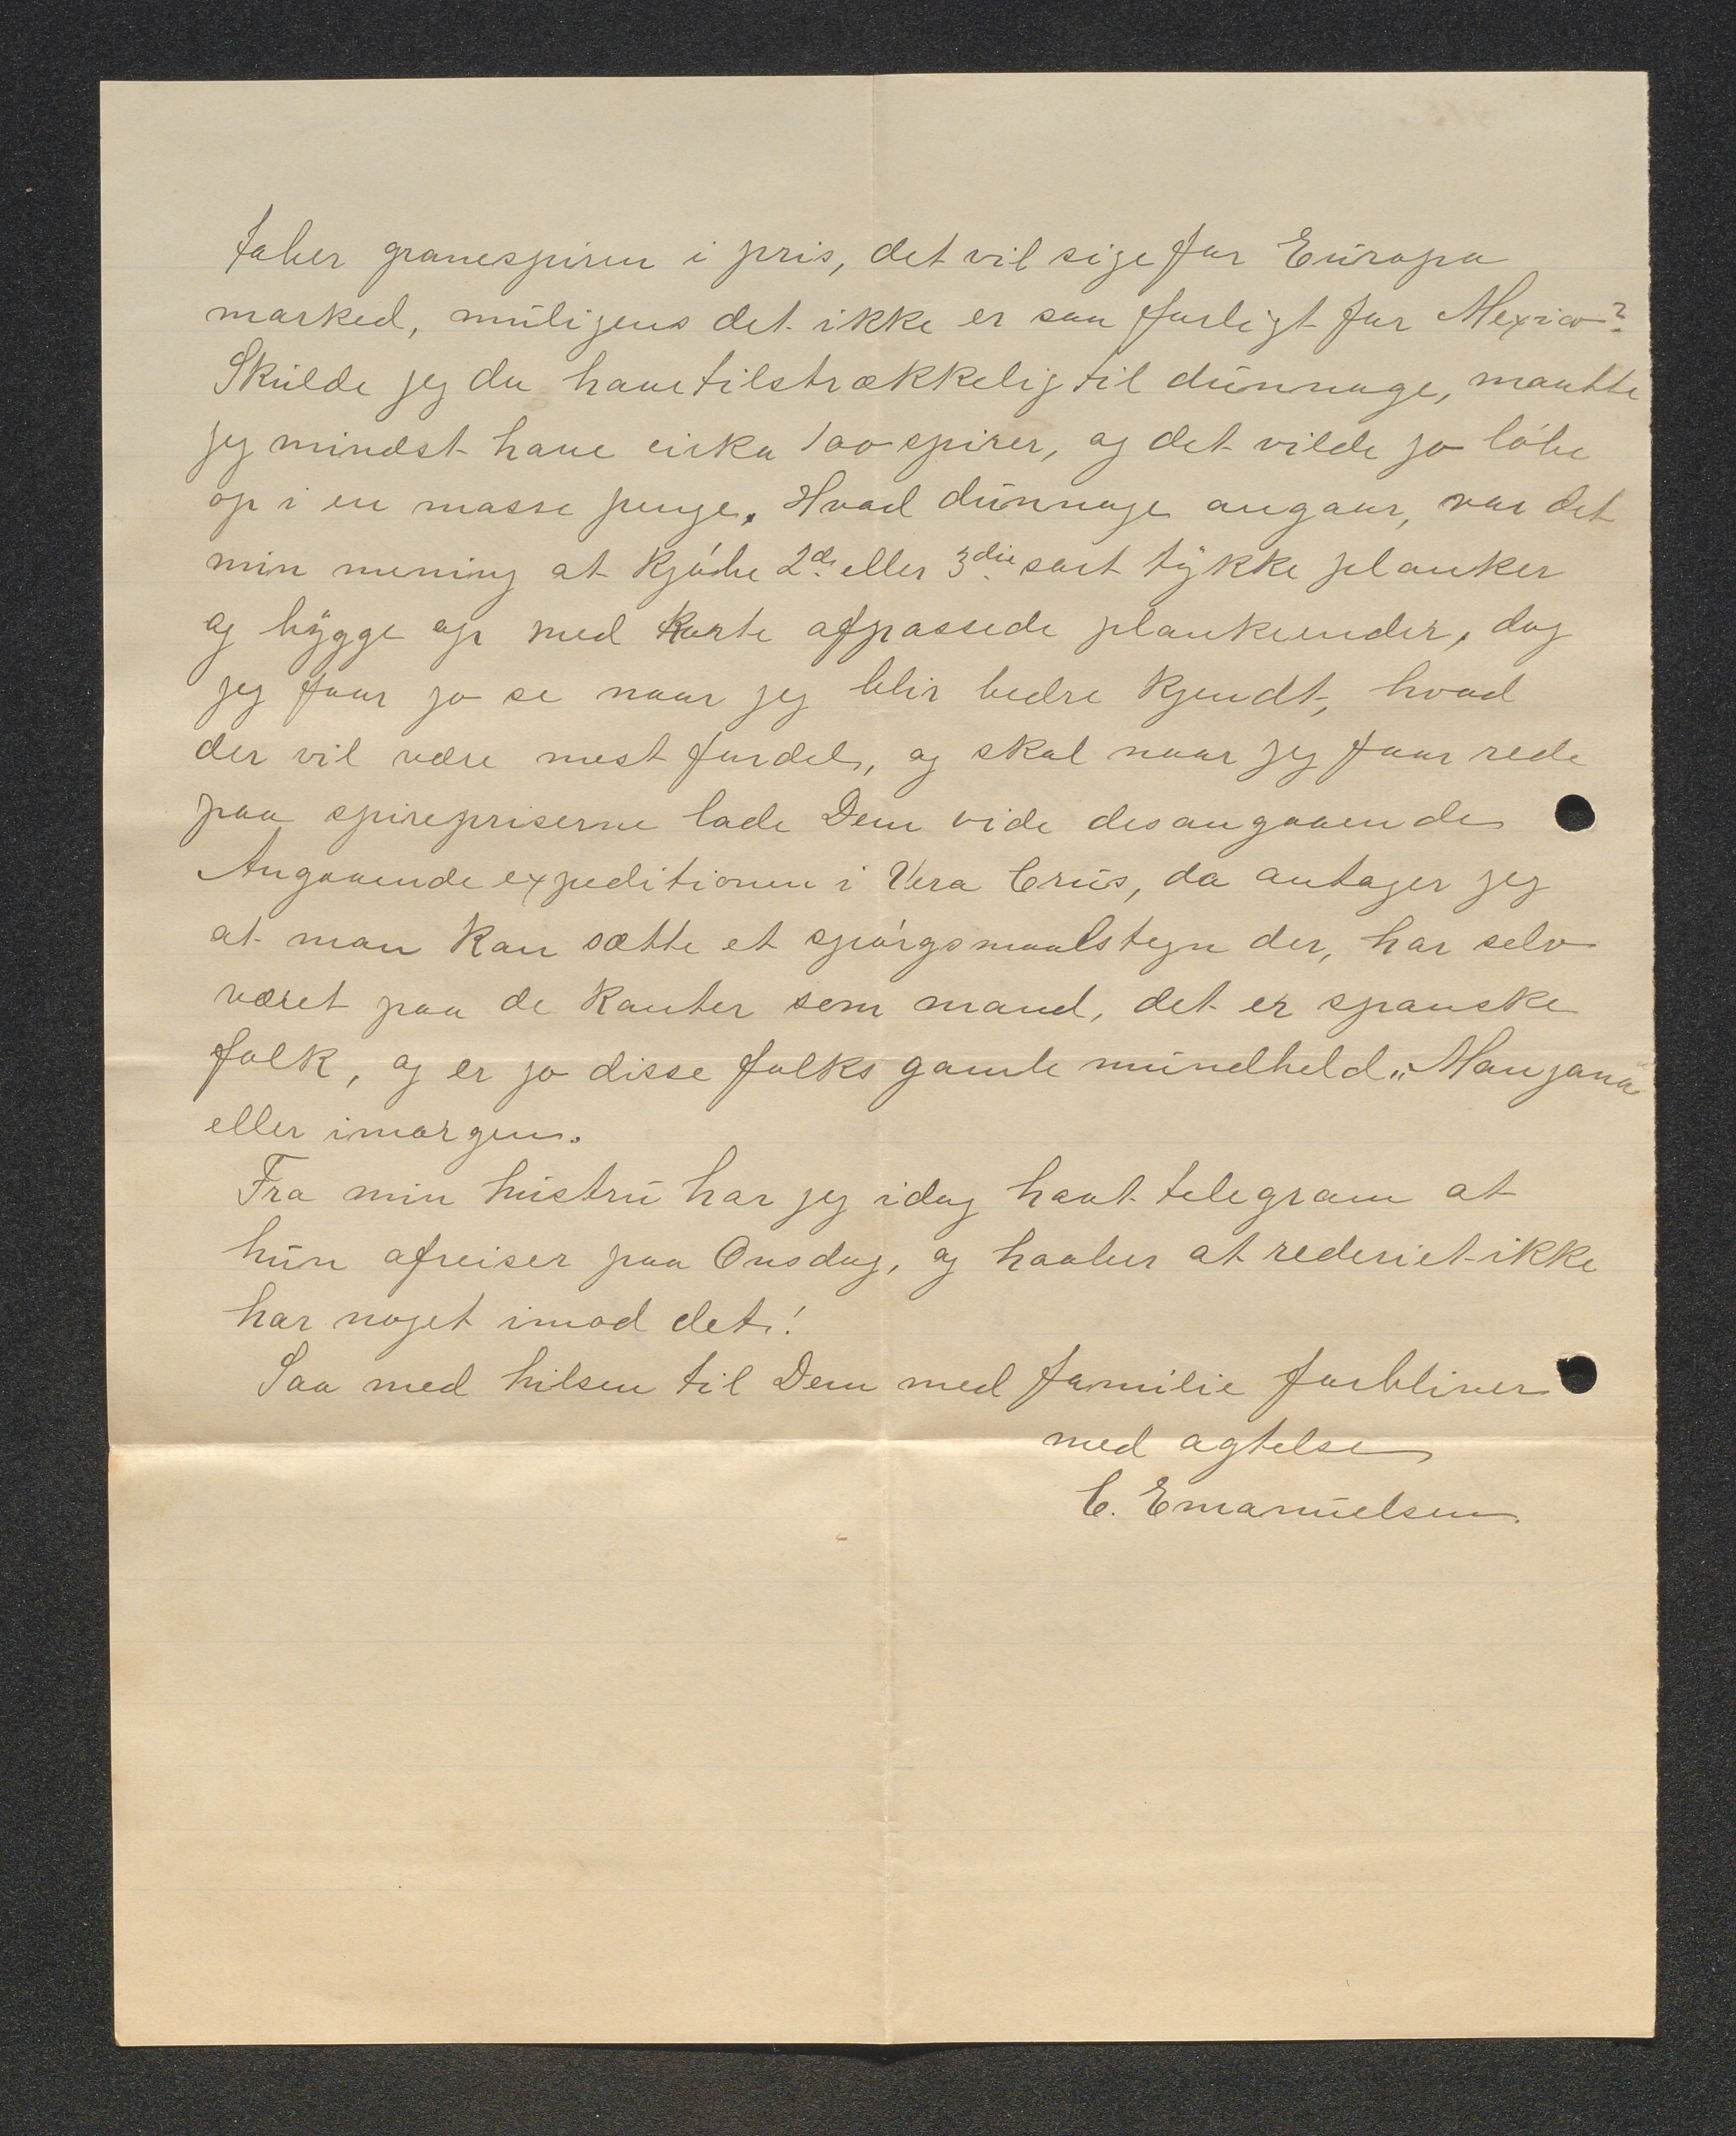 taber granespiren i pris, det vil sige for Europa
marked, muligens det ikke er saa farligt for Mexico?
Skulde jeg da have tilstrækkelig til dunnage, maatte
jeg mindst have cirka 100 spirer, og det vilde jo løbe
op i en masse penge. Hvad dunnage angaar, var det
min mening at kjøbe 2de eller 3die sort tykke planker
og bygge op med korte afpassede plankeender, dog
jeg faar jo se naar jeg blir bedre kjendt, hvad
der vil være mest fordel, og skal naar jeg faar rede
paa spirepriserne lade Dem vide desangaaende
Angaaende expeditionen i Vera Crus, da antager jeg
at man kan sætte et spørgsmaalstegn der, har selv
været paa de kanter som mand, det er spanske
folk, og er jo disse folks gamle mundheld „Manjana"
eller imorgen.
Fra min hustru har jeg idag havt telegram at
hun afreiser paa Onsdag, og haaber at rederiet ikke
har noget imod det!
Saa med hilsen til Dem med familie forbliver
med agtelse
C. Emanuelsen.